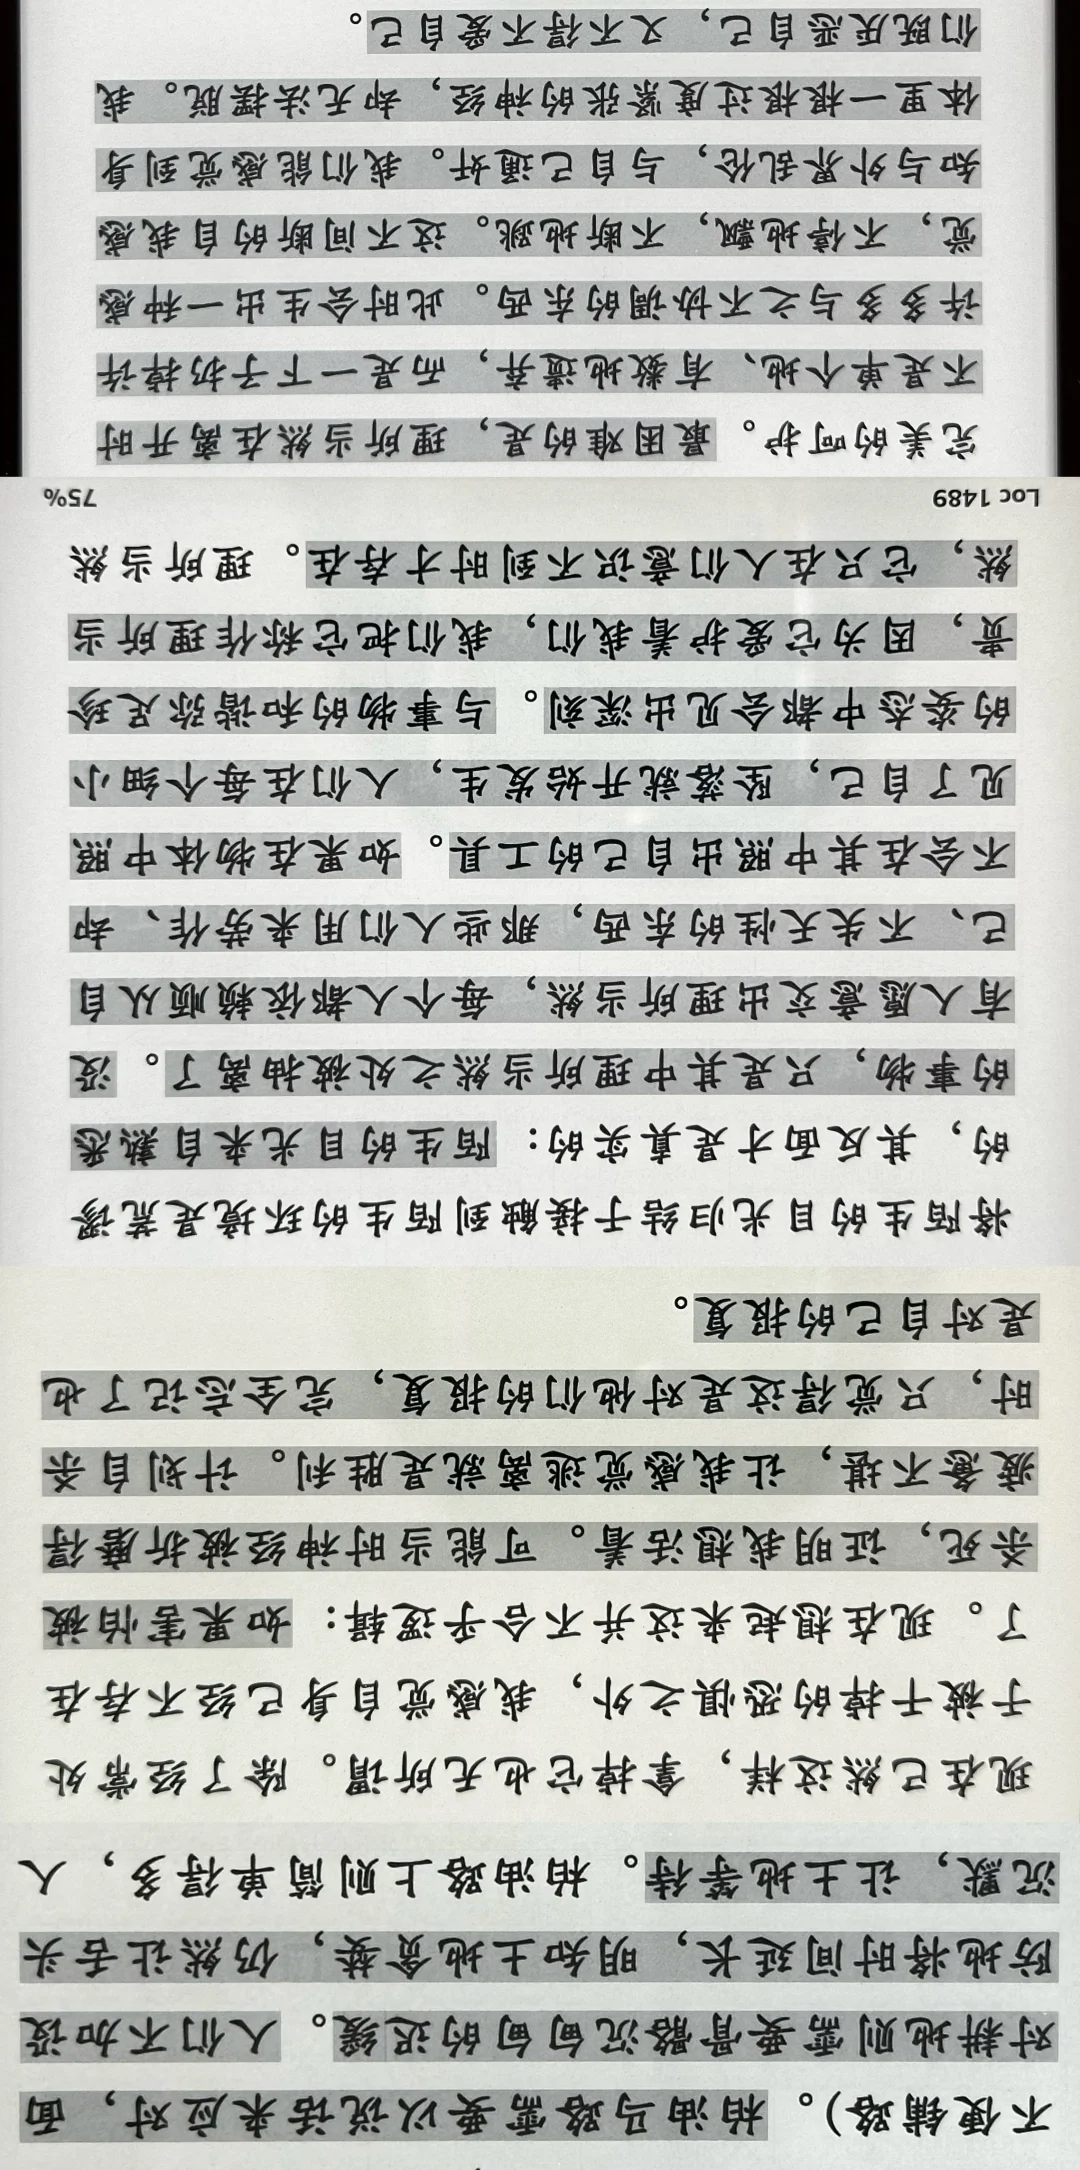 不便铺路）。柏油马路需要以说话来应对，面
对耕地则需要骨骼沉甸甸的迟缓。人们不加设
防地将时间延长，明知土地贪婪，仍然让舌头
沉默，让土地等待。柏油路上则简单得多，人
现在已然这样，拿掉它也无所谓。除了经常处
于被干掉的恐惧之外，我感觉自身已经不存在
了。现在想起来这并不合乎逻辑：如果害怕被
杀死，证明我想活着。可能当时神经被折磨得
疲惫不堪，让我感觉逃离就是胜利。计划自杀
时，只觉得这是对他们的报复，完全忘记了也
是对自己的报复。
将陌生的目光归结于接触到陌生的环境是荒谬
的，其反面才是真实的：陌生的目光来自熟悉
的事物，只是其中理所当然之处被抽离了。没
有人愿意交出理所当然，每个人都依赖顺从自
己、不失天性的东西，那些人们用来劳作、却
不会在其中照出自己的工具。如果在物体中照
见了自己，坠落就开始发生，人们在每个细小
的姿态中都会见出深刻。与事物的和谐弥足珍
贵，因为它爱护着我们，我们把它称作理所当
然，它只在人们意识不到时才存在。理所当然
Loc 1489 75%
完美的呵护。最困难的是，理所当然在离开时
不是单个地、有数地遗弃，而是一下子扔掉许
许多多与之不协调的东西。此时会生出一种感
觉，不停地飘，不断地跳。这不间断的自我感
知与外界乱伦，与自己通奸。我们能感觉到身
体里一根根过度紧张的神经，却无法摆脱。我
们既厌恶自己，又不得不爱自己。